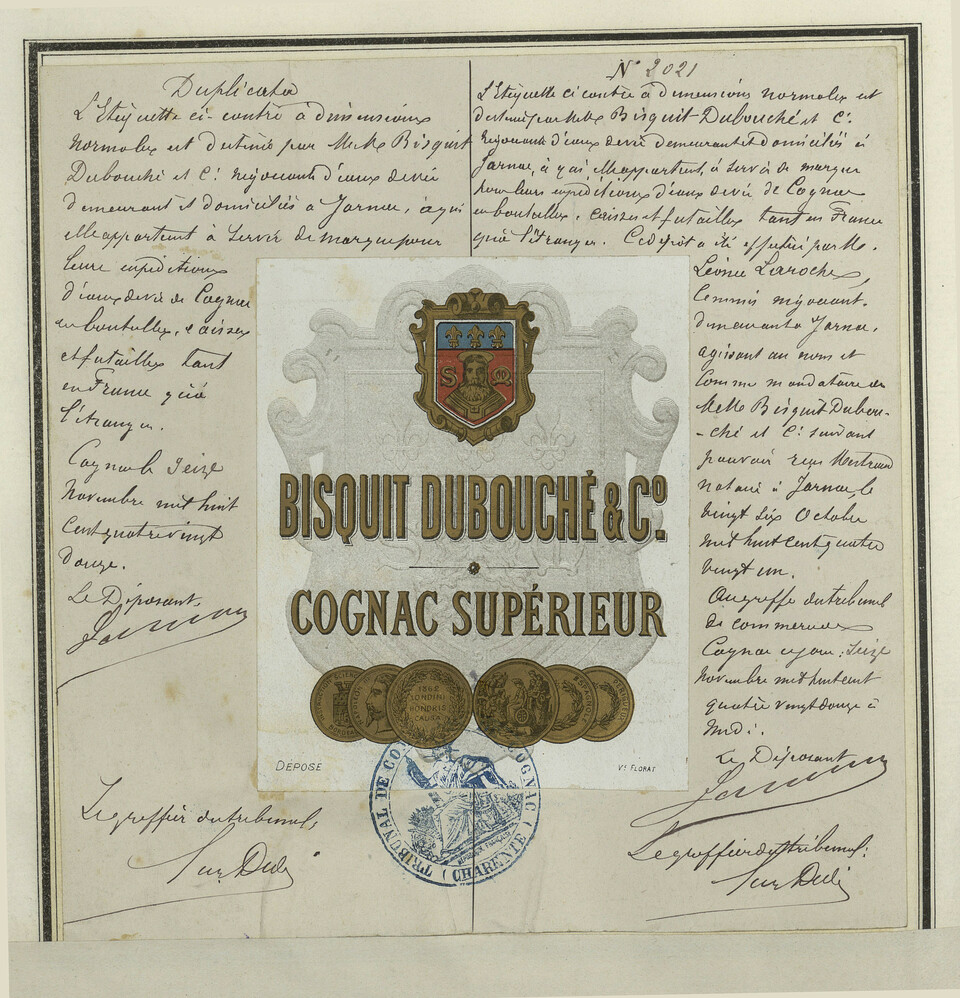 Duplicata
L'Etiquette ci-contre à dimensions
normales est destinée par MM. Bisquit
Dubouché et Cie négociants d'eaux de vie
demeurant et domiciliés à Jarnac, à qui
elle appartient à servir de marque pour
leurs expéditions
d'eaux de vie de Cognac
en bouteilles, caisses
et futailles tant
en France qu'à
l'étranger.
Cognac le seize
Novembre mil huit
cent quatre vingt
douze.
Le Déposant
Le greffier du tribunal,
N° 2021
L'Etiquette ci contre à dimensions normales et
destinée par MM. Bisquit Dubouché et Cie
négociants d'eaux de vie demeurant et domiciliés à
Jarnac, à qui elle appartient, à servir de marque
pour leurs expéditions d'eaux de vie de Cognac
en bouteilles, caisses et futailles tant en France
qu'à l'étranger. Ce dépôt a été effectué par M.
Léonce Laroche,
Commis négociant
demeurant à Jarnac,
agissant au nom et
comme mandataire de
MM. Bisquit Dubou-
-ché et Cie suivant
pouvoir reçu
notaire à Jarnac, le
vingt six Octobre
mil huit cent quatre
vingt un.
Au greffe du tribunal
de commerce de
Cognac ce jour: seize
Novembre mil huit cent
quatre vingt douze à
Midi.
Le Déposant
Le greffier du tribunal.
S M
BISQUIT DUBOUCHÉ & Cº.
COGNAC SUPÉRIEUR
1862
LONDINI
HONORIS
CAUSA
DEPOSE
Vᵉ FLORAT
TRIBUNAL DE COMMERCE COGNAC
(CHARENTE)